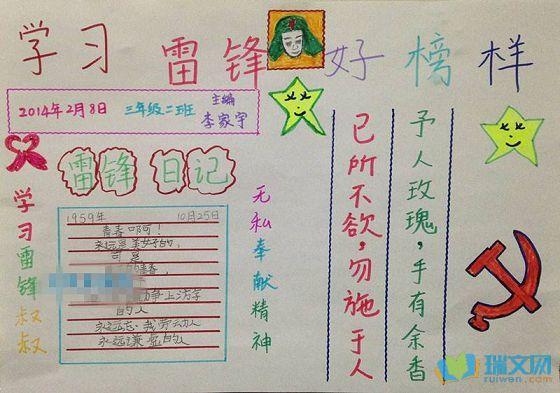 学习雷锋好榜样
2014年2月8日 三年级二班 主编 李家宇
雷锋日记
学习雷锋叔叔
1959年 10月25日
青春啊!
永远是美好的,
可是
的青春
争上游
的人
永远忠 我劳动人
永远谦虚的人
无私奉献精神
已所不欲,勿施于人
予人玫瑰,手有余香
瑞文网
ruiwen.com